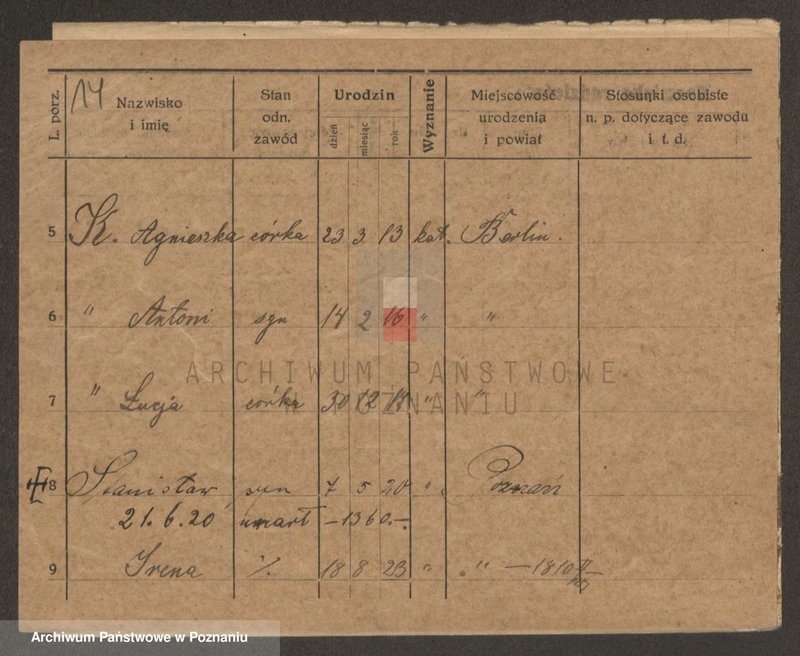 14
L. porz. Nazwisko i imię Stan odn. zawód Urodzin dzień miesiąc rok Wyznanie Miejscowość urodzenia i powiat Stosunki osobiste n. p. dotyczące zawodu i t. d.
5 K. Agnieszka córka 23 3 13 kat. Berlin.
6 " Antoni syn 14 2 16 " "
ARCHIWUM PAŃSTWOWE
W POZNANIU
7 " Łucja córka 30 12 " "
8 Stanisław syn 7 5 20 " Poznań
21.6.20 umarł -1360.-
9 Irena 18 8 23 " " - 1810
Archiwum Państwowe w Poznaniu